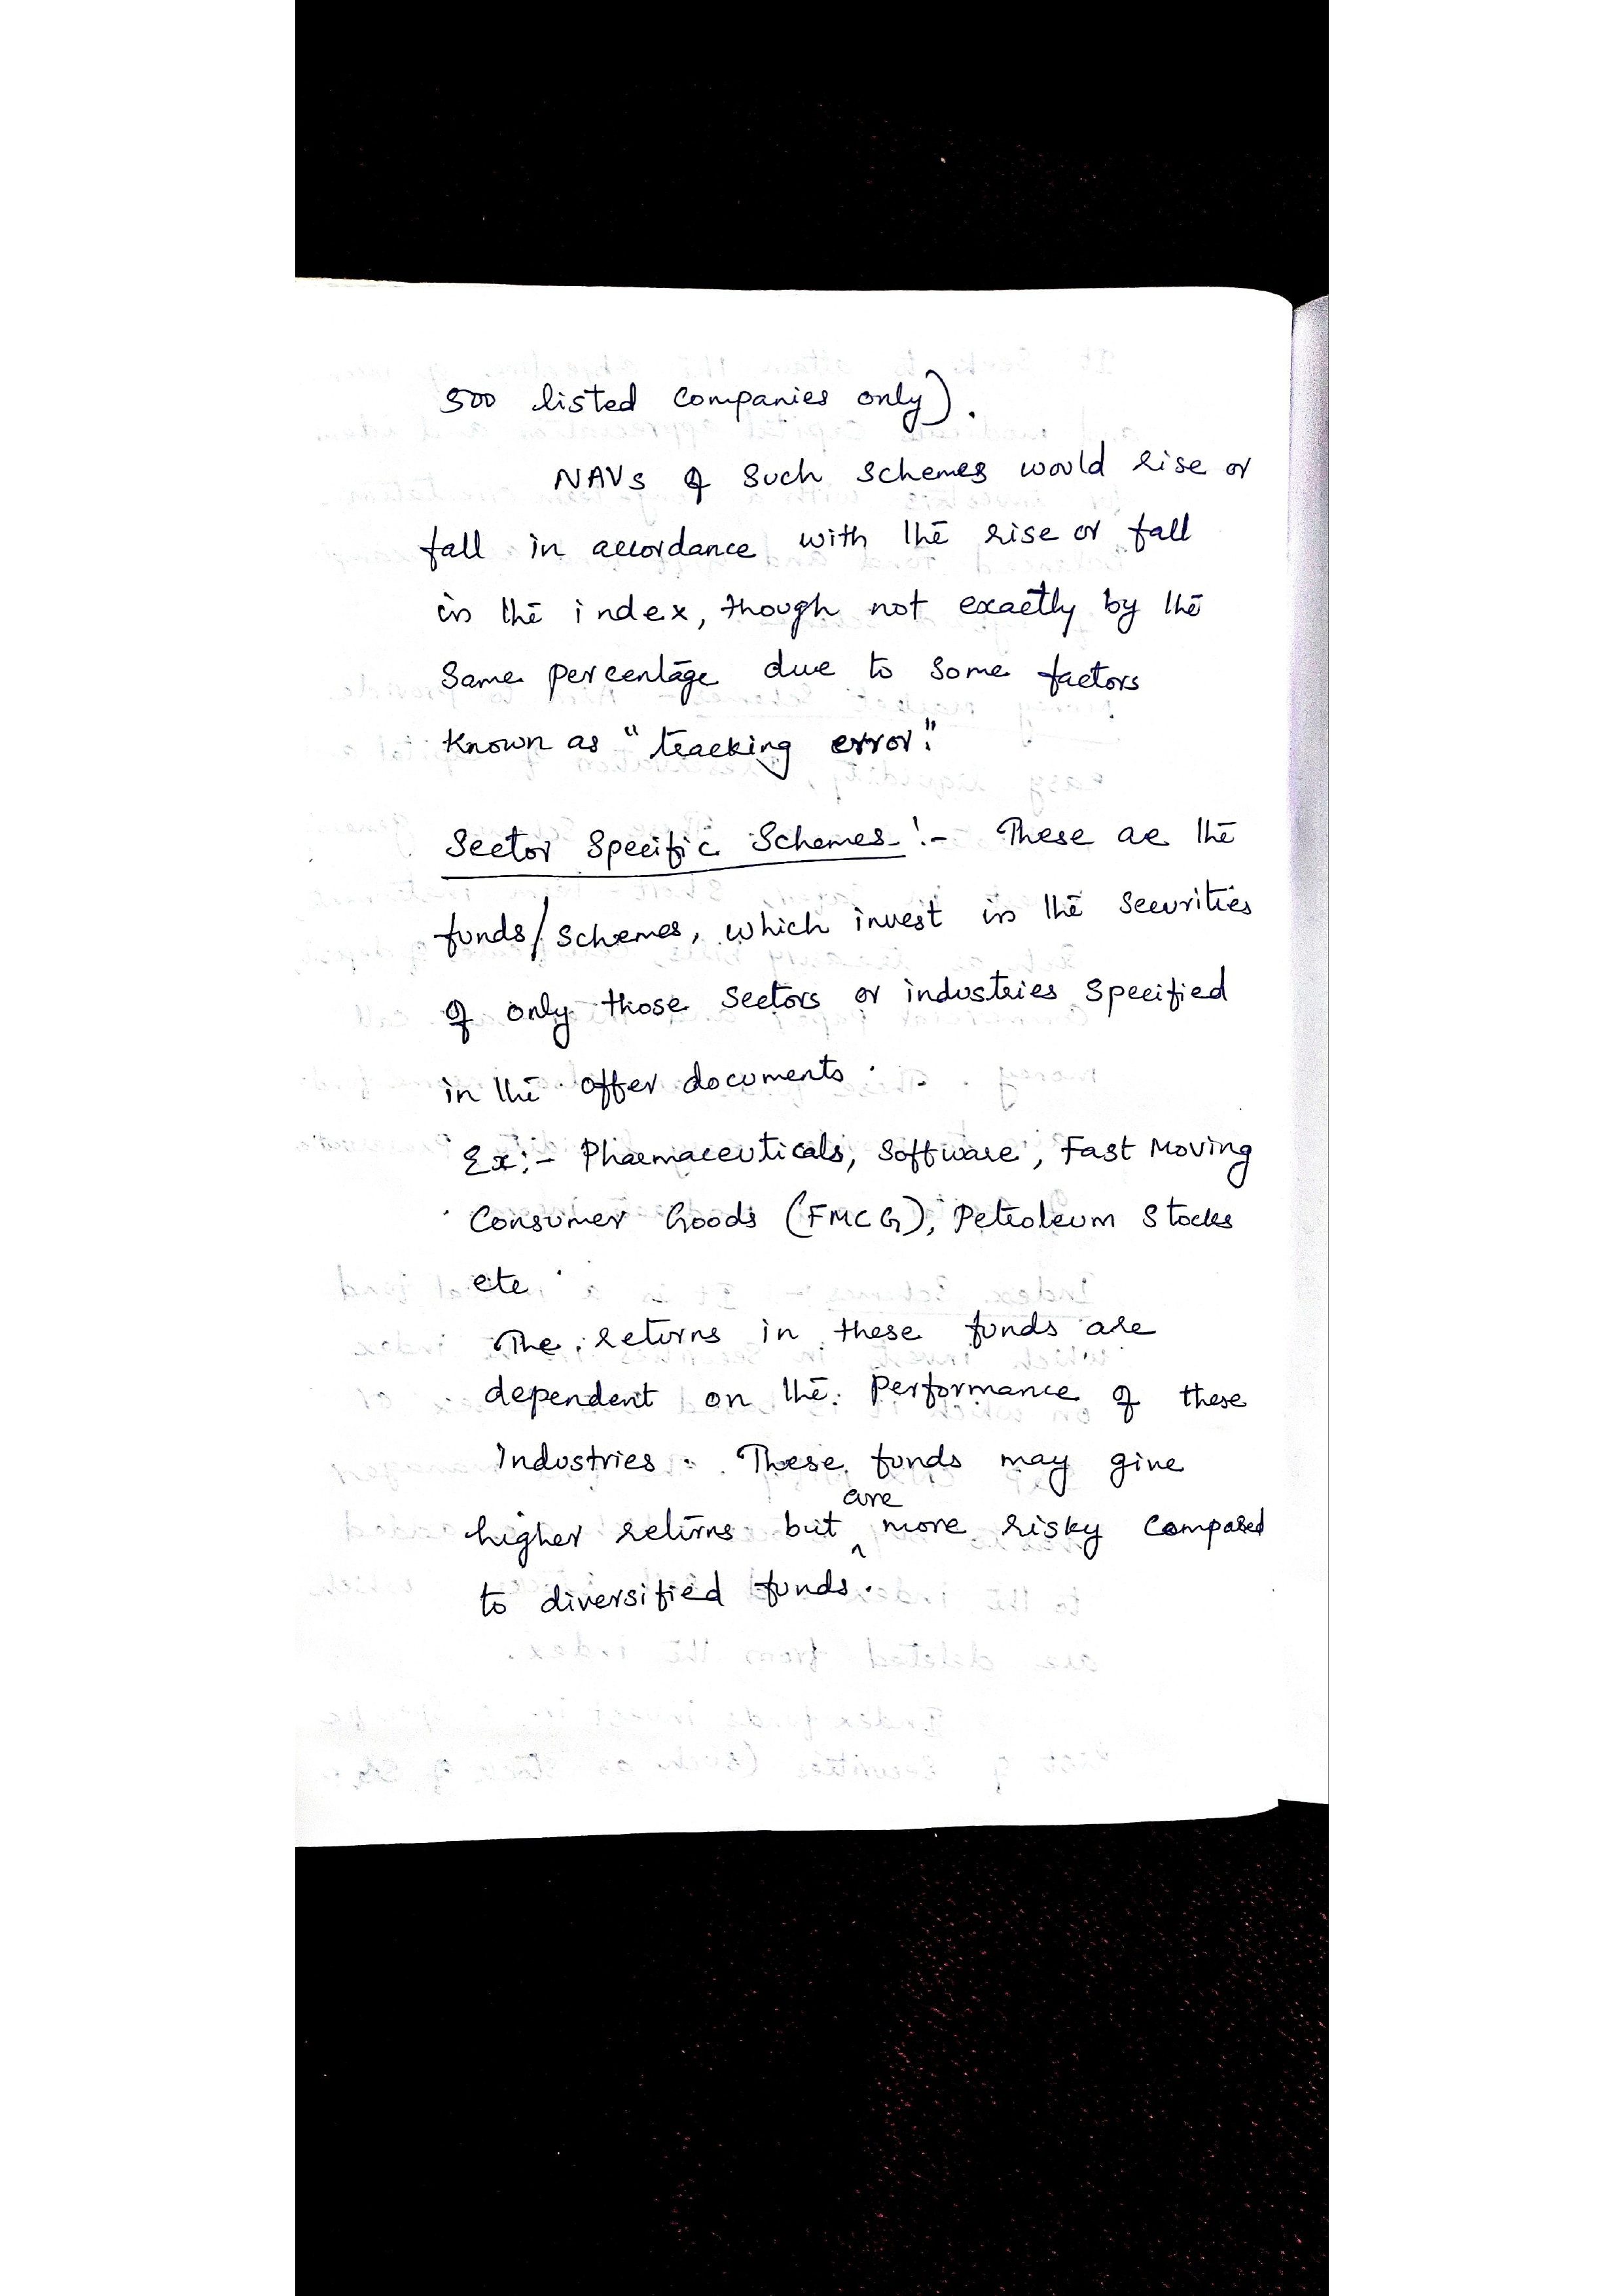 500 listed Companies only).
NAVs of Such Schemes would rise or
fall in accordance with the rise or fall
in the index, though not exactly by the
Same Percentage due to Some factors
Known as "tracking error."
Sector Specific Schemes :- These are the
funds/schemes, which invest in the Securities
of only those Sectors or industries Specified
in the offer documents.
Ex:- Pharmaceuticals, Software, Fast Moving
Consumer Goods (FMCG), Petroleum Stocks
etc.
The returns in these funds are
dependent on the Performance of these
Industries. These funds may give
higher returns but are more risky Compared
to diversified funds.